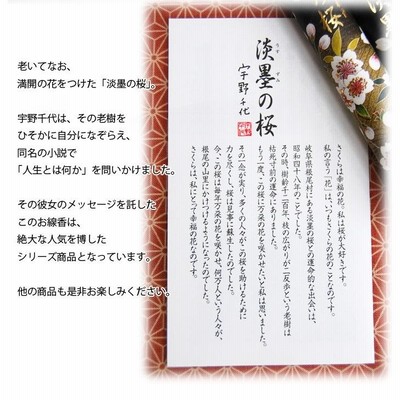 老いてなお、
満開の花をつけた「淡墨の桜」。
宇野千代は、その老樹を
ひそかに自分になぞらえ、
同名の小説で
「人生とは何か」を問いかけました。
その彼女のメッセージを託した
このお線香は、
絶大な人気を博した
シリーズ商品となっています。
他の商品も是非お楽しみください。
淡墨の桜
うす ずみ
宇野千代
さくらは幸福の花。私は桜が大好きです。
私の言う「花」は、いつもさくらの花のことなのです。
岐阜県根尾村にある淡墨の桜との運命的な出会いは、
昭和四十八年のことでした。
その時、樹齢千二百年、枝の広がりが二反歩という老樹は
枯死寸前の運命にありました。
もう一度、この桜に万朶の花を咲かせたいと私は思いました。
その一念が実り、多くの人々がこの桜を助けるために
力を尽くし、桜は見事に蘇生したのでした。
今、この桜は毎年万朶の花を咲かせ、何万人という人々が、
根尾の山里にかけつけるようになったのでした。
さくらは、私にとって幸福の花なのです。
桜